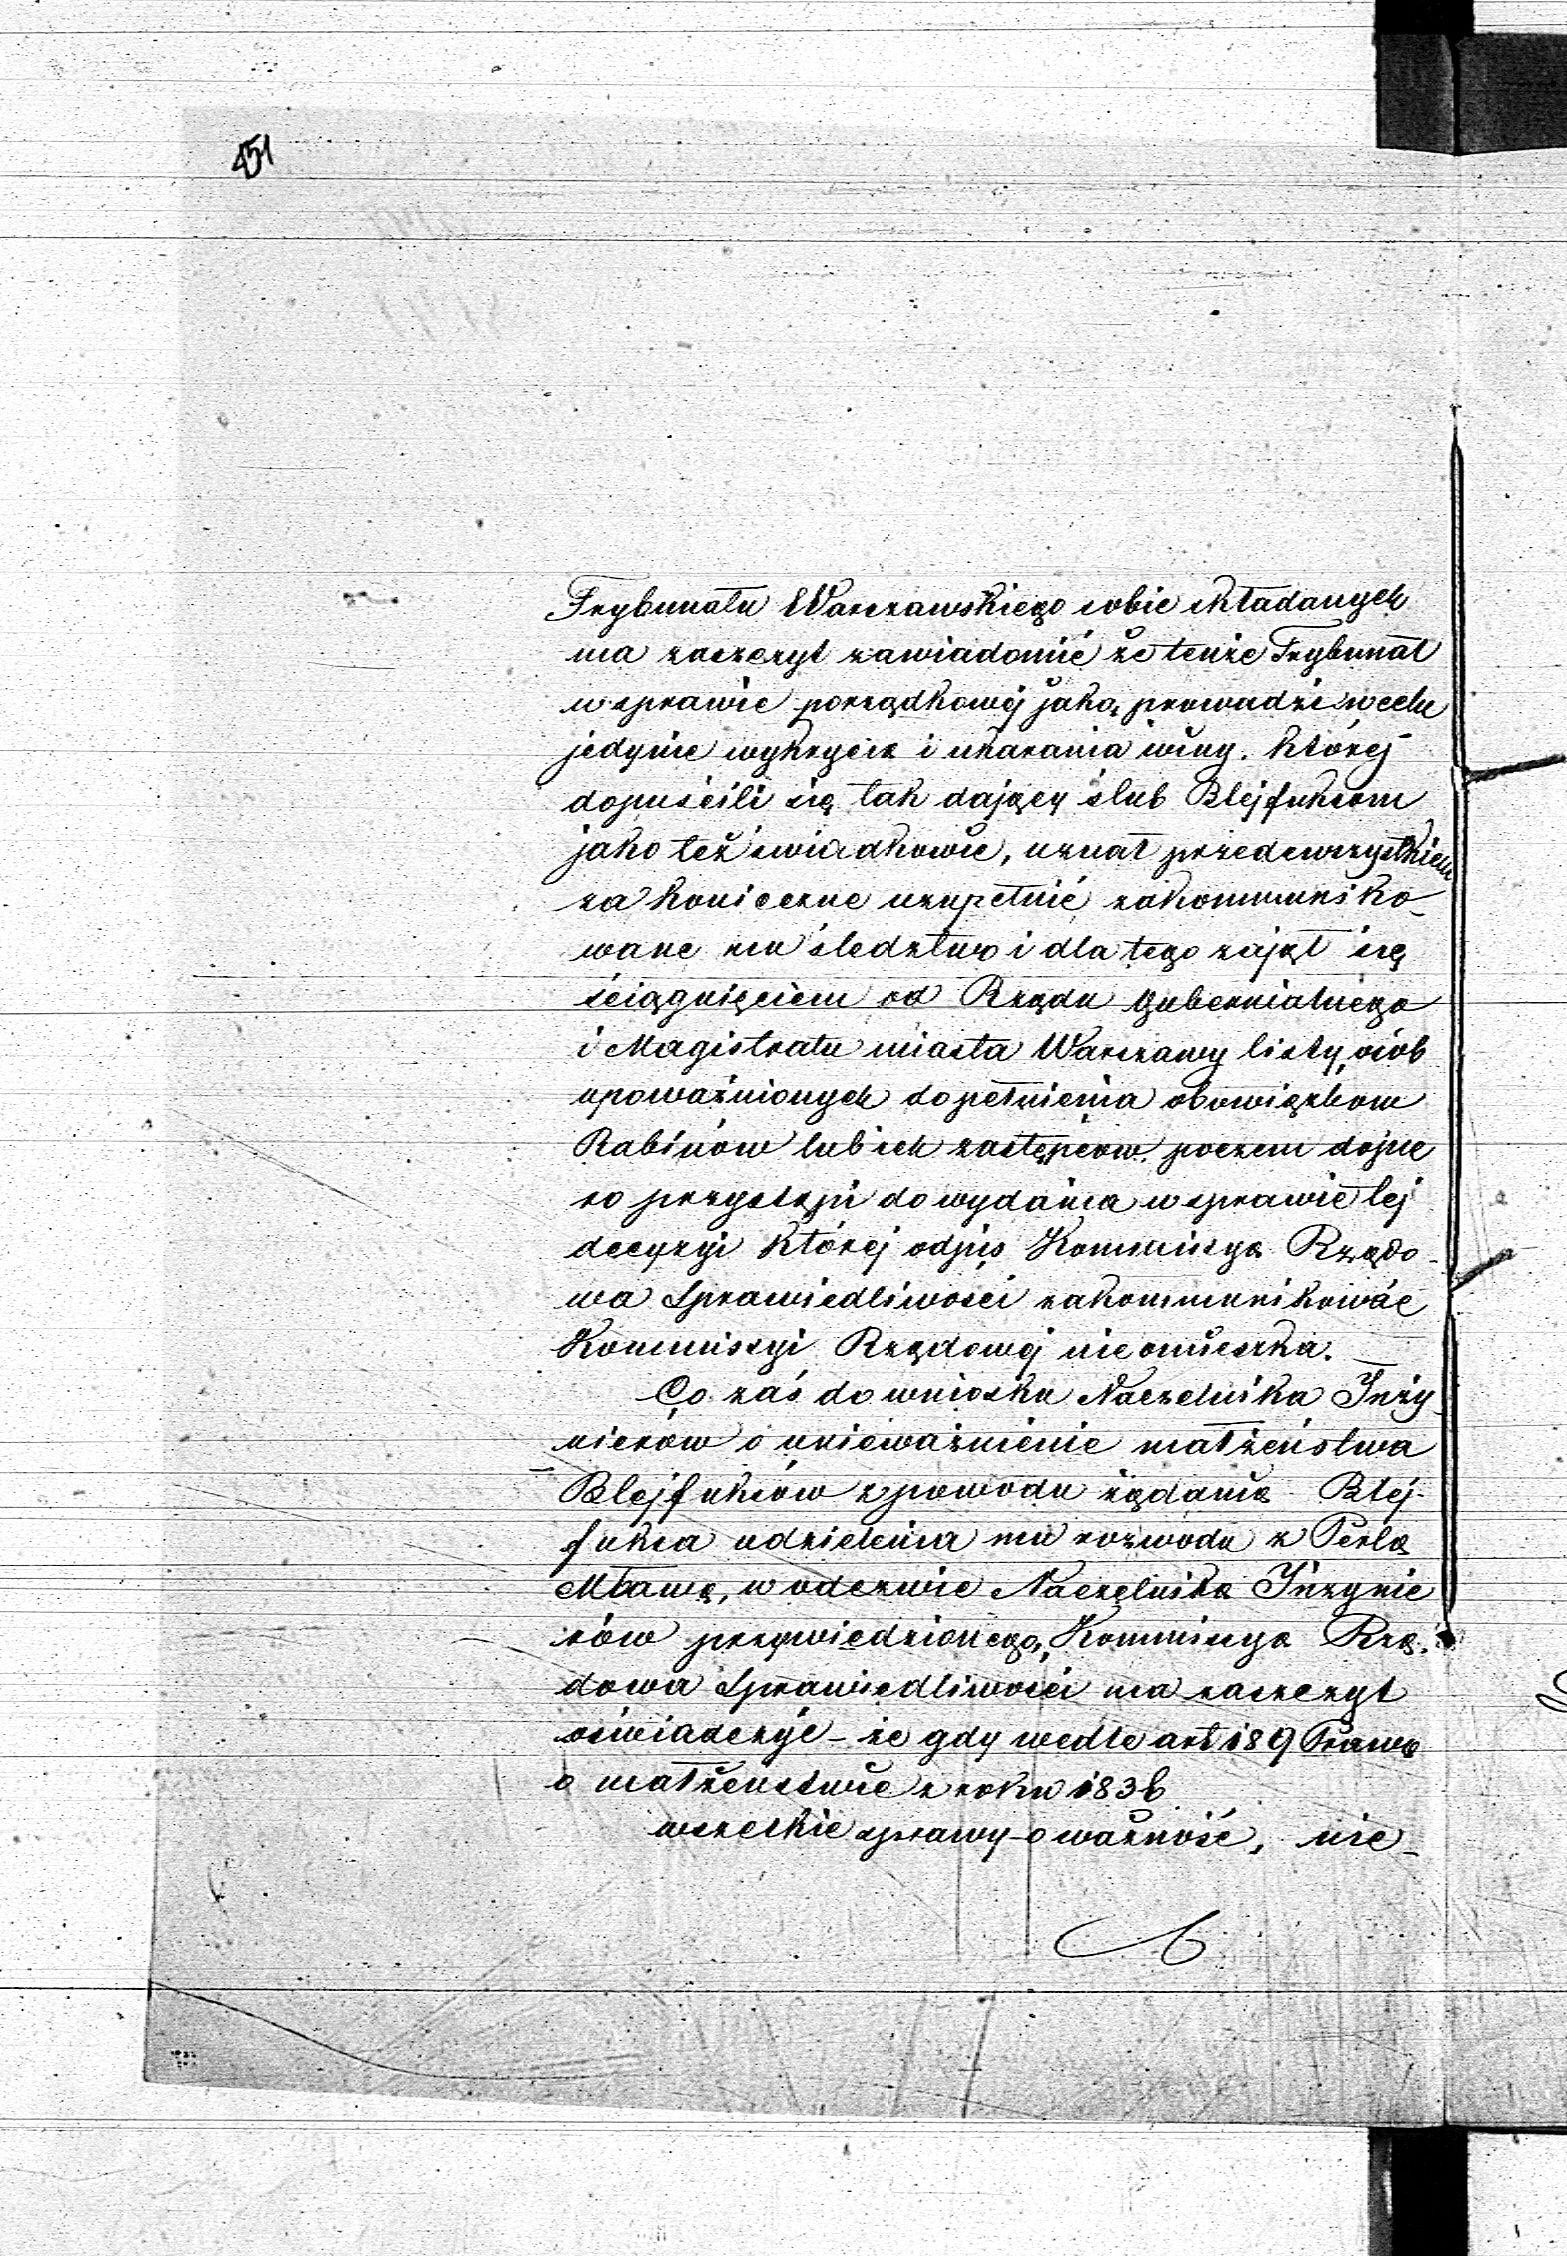 451
Trybunału Warszawskiego sobie składanych
ma zaszczyt zawiadomić że tenże Trybunał
w sprawie porządkowéj jako prowadzi w celu
jedynie wykrycia i ukarania winy. któréj
dopuścili się tak dający ślub Blejfuksom
jako też świadkowie, uznał przedewszystkiem
za konieczne uzupełnić zakommuniko-
wane mu śledztwo i dla tego zajął się
ściągnięciem od Rządu Gubernialnego
i Magistratu miasta Warszawy listy osób
upoważnionych do pełnienia obowiązkow
Rabinów lub ich zastępców, poczem dopie
ro przystąpi do wydania w sprawie téj
decyzyi którój odpis Kommissya Rządo-
wa Sprawiedliwości zakommunikować
Kommissyi Rządowéj nieomieszka.
Co zaś do wniosku Naczelnika Inży
nierów o unieważnienie małżeństwa
Blejfuksów z powodu żądania Blej-
fuksa udzielenia mu rozwodu z Perlą
Mławą, w odezwie Naczelnika Inżynie
rów przywiedzionego, Kommissya Rzą-
dowa Sprawiedliwości ma zaszczyt
oświadczyć – że gdy wedle art 189 Prawa
o małżeństwie z roku 1836
wszelkie sprawy o ważność, nie-